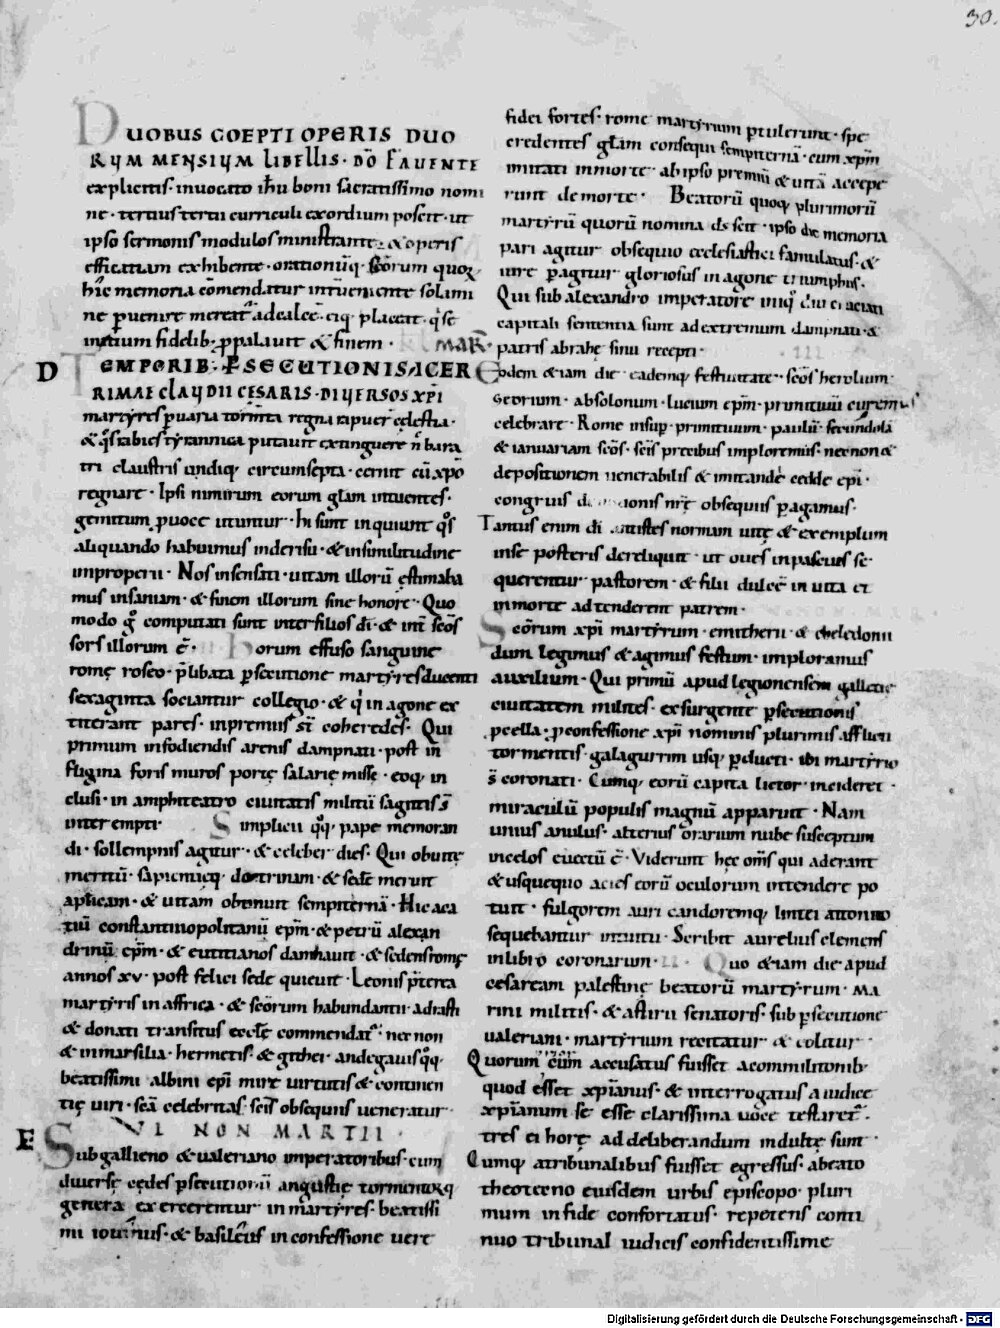 30.
DUOBUS COEPTI OPERIS DUO
RUM MENSIUM LIBELLIS · DÑO FAUENTE
explicitis · inuocato ihu boni sacratissimo nomi
ne · tertius tertii curriculi exordium poscit · ut
ipso sermonis modulos ministrante · & operis
efficatiam exhibente · orationũq; scõrum quoꝝ
hic memoria cõmendatur interueniente solami
ne puenire mereatr̃ ad ealec̃ · eiq; placeat · qi se
initium fidelibꝰ ppalauit & finem · MAR̃
D TEMPORIB; PSECUTIONIS ACER
RIMAE CLAUDII CESARIS · DIUERSOS XPI
martyres puaria tormta regna rapuer̃ cęlestia ·
& qos rabies tyrannica putauit extinguere ñ bara
tri claustris undiq; circumsepta · cernit cũ xpõ
regnare · Ipsi nimirum eorum glam intuentes ·
gemitum puoce intuntur · hi sunt inquiunt qos
aliquando habuimus inderisu · & insimilitudine
improperii · Nos insensati · uitam illorũ ęstimaba
mus insaniam · & finem illorum sine honore · Quo
modo g̃ computati sunt inter filios dĩ · & int scõs
sors illorum ẽ · horum effuso sanguine
romę roseo · plibata psecutione martyres ducenti
sexaginta sociantur collegio · & qi in agone ex
titerant pares · inpremiis sĩ coheredes · Qui
primum infodiendis arenis dampnati · post in
fligina foris muros portę salarię missę · eoq; in
clusi · in amphiteatro ciuitatis militũ sagittis s̃
interempti · Simplicii qq; pape memoran
di · sollempnis agitur · & celeber dies · Qui obuitę
meritũ · sapientięq; doctrinam · & sedẽ meruit
aplicam · & uitam obtinuit sempiternã · Hic aca
tiũ constantinopolitanũ epm̃ · & petrũ alexan
drinũ epm̃ · & eutitianos damnauit · & sedens romę
annos xv · post felici sede quieuit · Leonis p̃terea
martyris in affrica · & scõrum habundantii · adrasti
& donati transitus ecclę commendatr · nec non
& inmarsilia · hermetis · & gether · andegauis qq;
beatissimi albini epi mire uirtutis & continen
tię uiri · scã celebritas scis obsequiis ueneratur ·
VI NON MARTII ·
F Sub gallieno & ualeriano imperatoribus · cum
diuersę cędes psecutionũ angustię tormentoꝝq;
genera excererentur in martyres · beatissi
mi iouinus · & basileus in confessione uere
fidei fortes · rome martyrium ptulerunt · spe
credentes glam consequi sempiternã · cum xpm
imitati inmorte · ab ipso premiũ & uitã accepe
runt de morte · Beatorũ quoq; plurimorũ
martyrũ quorũ nomina ds scit · ipso die memoria
pari agitur obsequio ecclesiastici famulatus · &
iure pagitur gloriosus in agone triumphus ·
Qui sub alexandro imperatore diu cruciati
capitali sententia sunt ad extremum dampnati · &
patris abrahę sinu recepti · III
Eodem etiam die eademq; festiuitate · scõs herolium
georium · absolonum · lucium epm · primitiuũ curemus
celebrare · Rome insup · primitiuum · paulũ · secundolã
& ianuariam scõs · scis precibus imploremus · necnon &
depositionem uenerabilis & imitandę cedde epi ·
congruis nr̃ę obsequiis pagamus ·
Tantus enim dĩ antistes normam uitę & exemplum
inse posteris dereliquit · ut oues inpascuis se
querentur pastorem · & filii dulcẽ in uita et
inmorte ad tenderent patrem ·
NON MAR
Scõrum xpi martyrum · emitherii & cheledonii
dum legimus & agimus festum · imploramus
auxilium · Qui primũ apud legionensem gallecię
ciuitatem milites · exsurgente psecutionis
pcella · p confessione xpi nominis plurimis afflicti
tormentis · galagurrim usq; pducti · ibi martyrio
s̃ coronati · Cumq; eorũ capita lictor incideret ·
miraculũ populis magnũ apparuit · Nam
unius anulus · alterius orarium nube susceptum
incelos euectũ ẽ · Viderunt hęc oms qui aderant
& usquequo acies eorũ oculorum intendere po
tuit · fulgorem auri candoremq; lintei attonito
sequebantur intuitu · Scribit aurelius clemens
inlibro coronarum · II · Quo etiam die apud
cesaream palestinę beatorũ martyrum · MA
rini militis · & astirii senatoris · sub psecutione
ualeriani · martyrium recitatur & colitur
Quorum cum accusatus fuisset acommilitonib;
quod esset xpianus · & interrogatus a iudice
xpianum se esse clarissima uoce testaret ·
tres ei horę ad deliberandum indultę sunt ·
Cumq; atribunalibus fuisset egressus · abeato
theotecno eiusdem urbis episcopo · pluri
mum in fide confortatus · repetens conti
nuo tribunal iudicis confidentissime
Digitalisierung gefördert durch die Deutsche Forschungsgemeinschaft - DFG